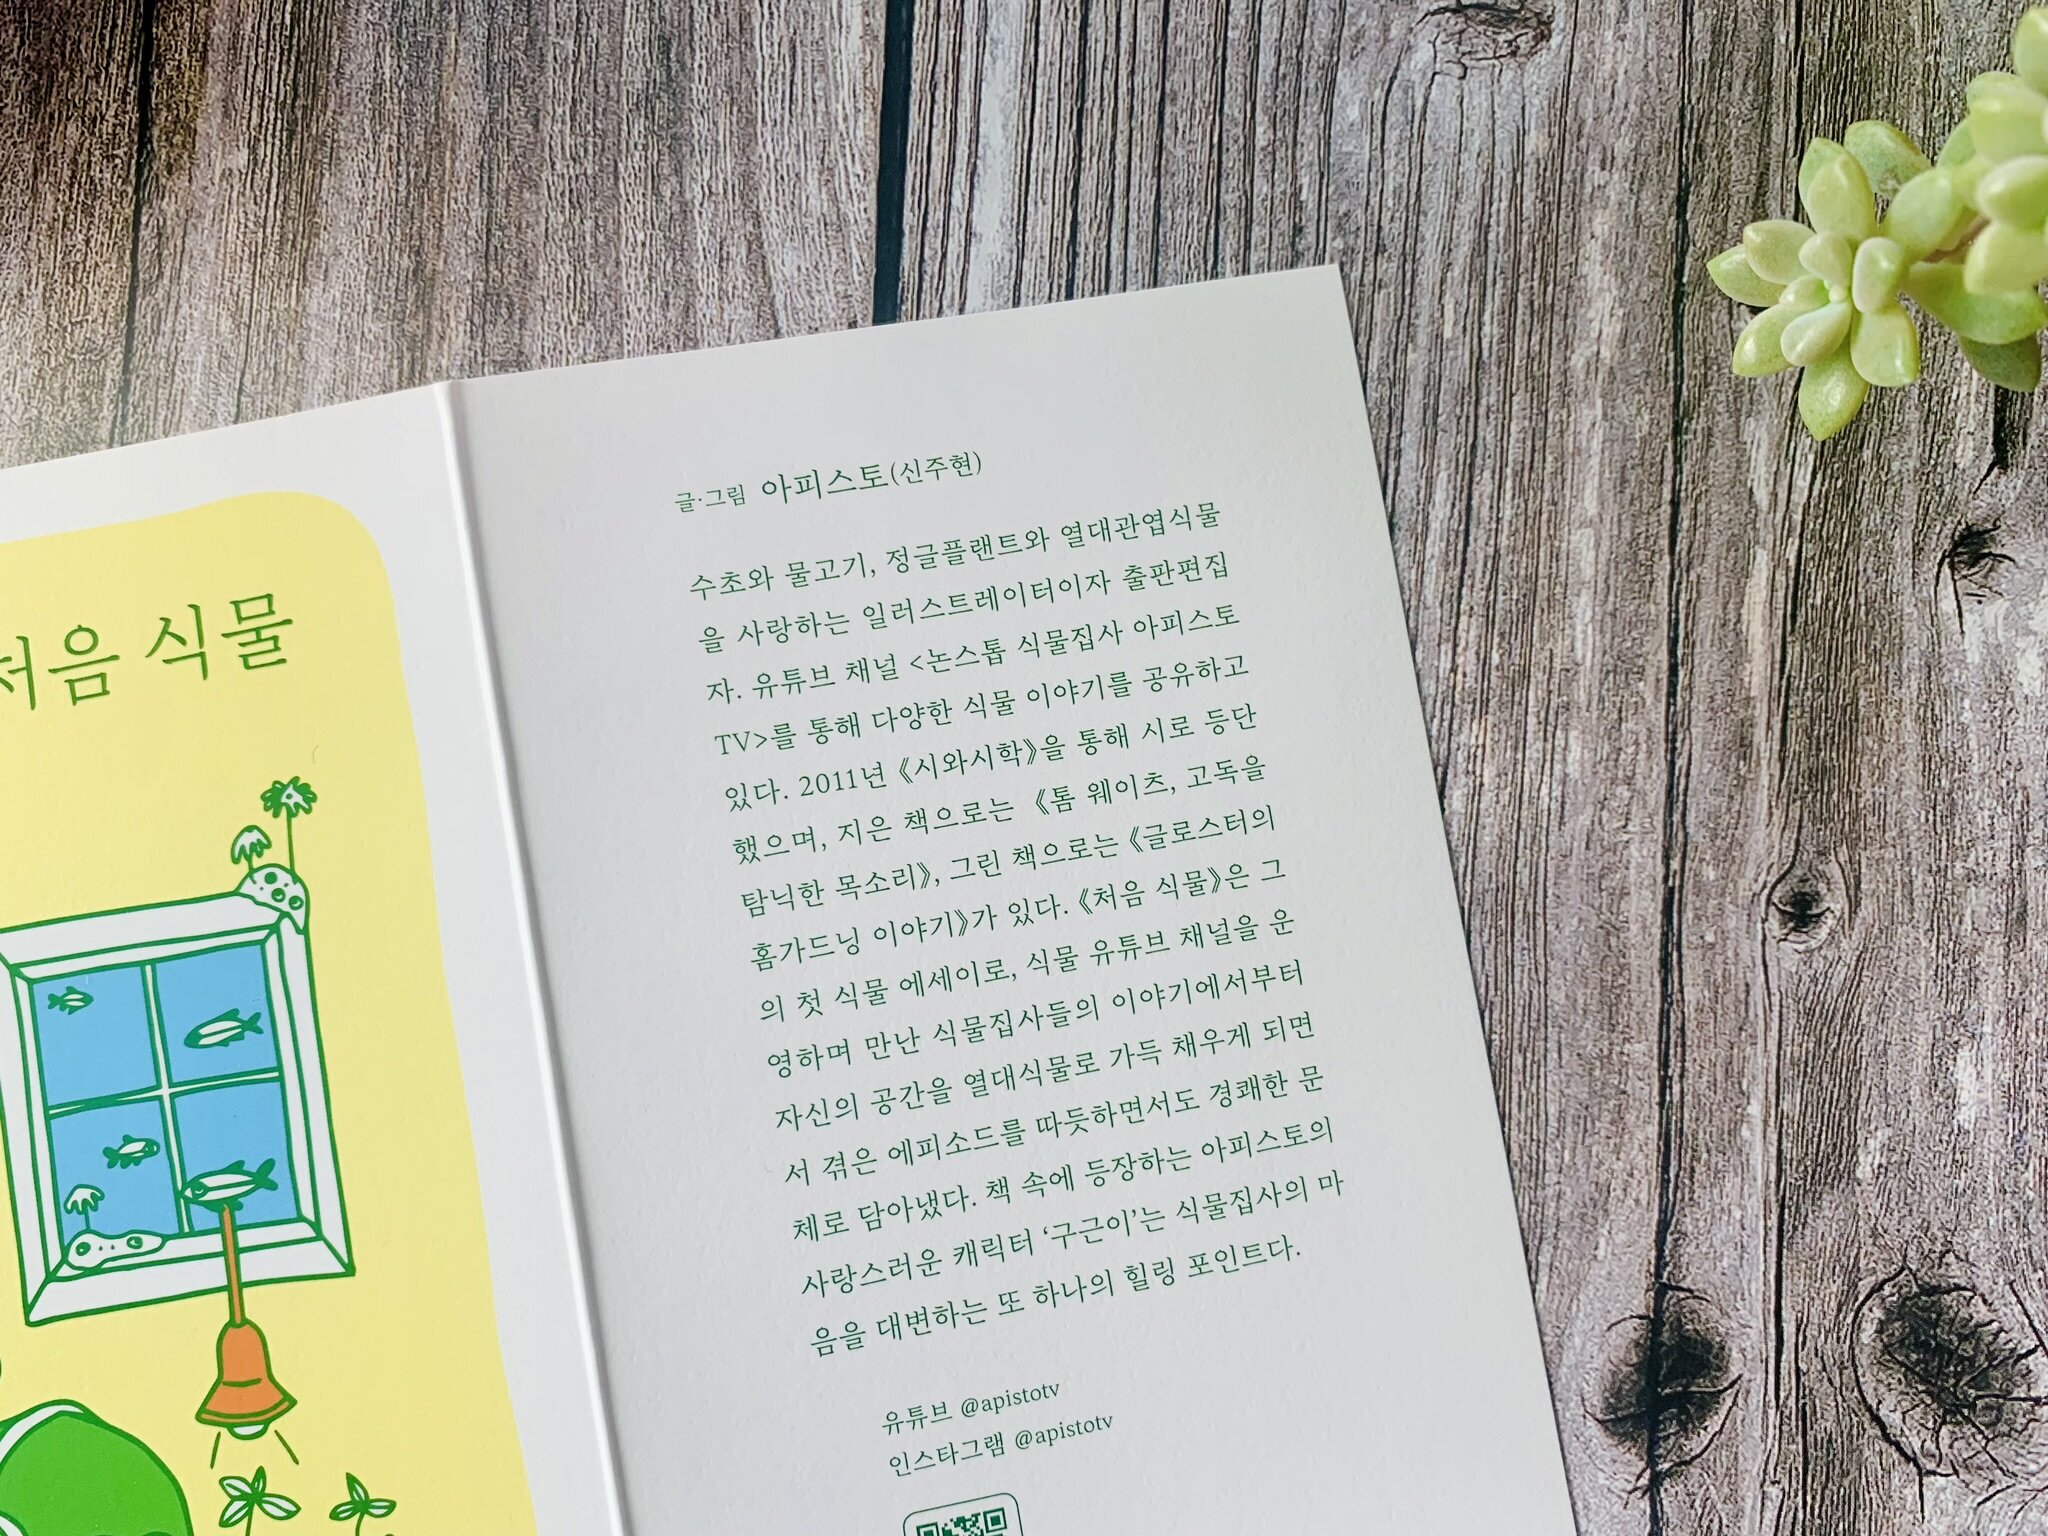 처음 식물
글·그림 아피스토(신주현)
수초와 물고기, 정글플랜트와 열대관엽식물
을 사랑하는 일러스트레이터이자 출판편집
자. 유튜브 채널 <논스톱 식물집사 아피스토
TV>를 통해 다양한 식물 이야기를 공유하고
있다. 2011년 《시와시학》을 통해 시로 등단
했으며, 지은 책으로는 《톰 웨이츠, 고독을
탐닉한 목소리》, 그린 책으로는 《글로스터의
홈가드닝 이야기》가 있다. 《처음 식물》은 그
의 첫 식물 에세이로, 식물 유튜브 채널을 운
영하며 만난 식물집사들의 이야기에서부터
자신의 공간을 열대식물로 가득 채우게 되면
서 겪은 에피소드를 따듯하면서도 경쾌한 문
체로 담아냈다. 책 속에 등장하는 아피스토의
사랑스러운 캐릭터 ‘구근이’는 식물집사의 마
음을 대변하는 또 하나의 힐링 포인트다.
유튜브 @apistotv
인스타그램 @apistotv